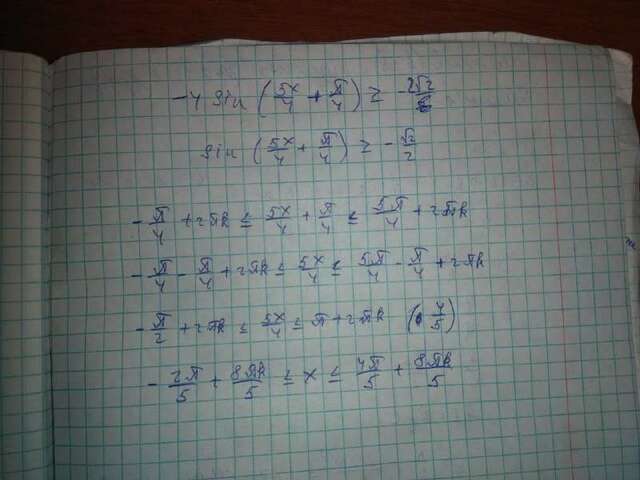 -4 sin (5x/4 + π/4) ≥ -2√2
sin (5x/4 + π/4) ≥ -√2/2
-π/4 + 2πk ≤ 5x/4 + π/4 ≤ 5π/4 + 2πk
-π/4 - π/4 + 2πk ≤ 5x/4 ≤ 5π/4 - π/4 + 2πk
-π/2 + 2πk ≤ 5x/4 ≤ π + 2πk (4/5)
-2π/5 + 8πk/5 ≤ x ≤ 4π/5 + 8πk/5